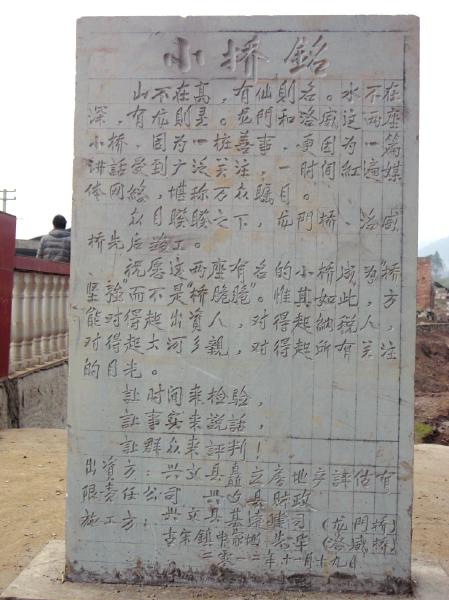 小桥銘
山不在高，有仙則名。水不在
深，有龙則灵。龙門和洛威这两座
小桥，因为一桩善事，更因为一篇
讲話受到广泛关注，一时间紅遍媒
体网絡，堪称万众瞩目。
众目睽睽之下，龙門橋、洛威
桥先后竣工。
祝愿这两座有名的小桥成为“桥
坚強”而不是“桥脆脆”。惟其如此，方
能对得起出資人，对得起納税人，
对得起大河乡親，对得起所有关注
的目光。
让时间来检验，
让事实来説話，
让群众来評判！
出資方：兴文县矗立房地产評估有
限责任公司 兴文县財政
施工方：兴文县基 司（龙門桥）
古宋鎮 （洛威桥）
二零一二年十一月十九日